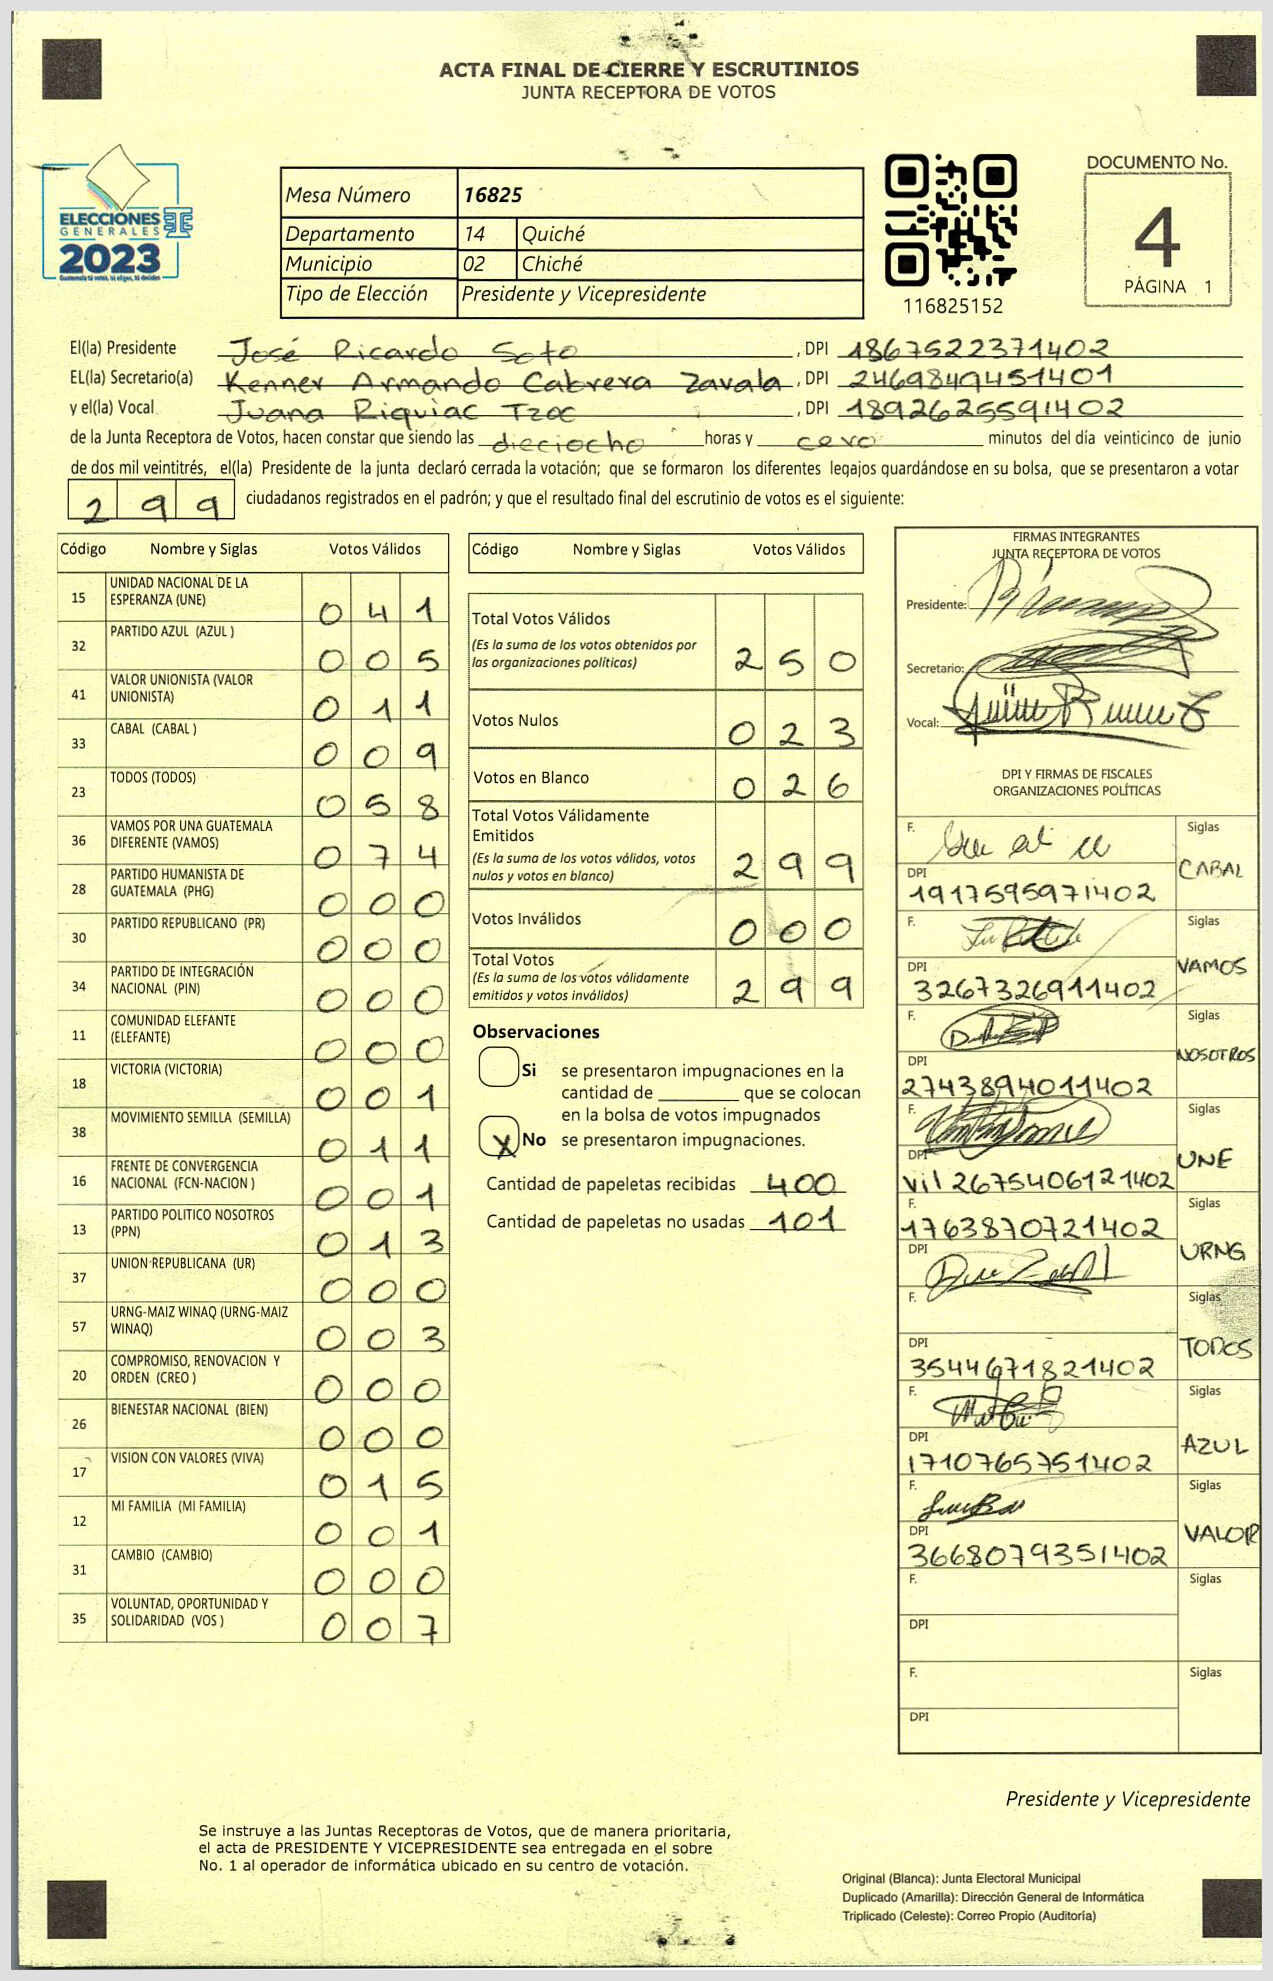 ACTA FINAL DE CIERRE Y ESCRUTINIOS
JUNTA RECEPTORA DE VOTOS
ELECCIONES
GENERALES
2023
Guatemala tú votas, tú eliges, tú decides
Mesa Número 16825
Departamento 14 Quiché
Municipio 02 Chiché
Tipo de Elección Presidente y Vicepresidente
116825152
DOCUMENTO No.
4
PÁGINA 1
El(la) Presidente José Ricardo Soto , DPI 1867522371402
EL(la) Secretario(a) Kenner Armando Cabrera Zavala , DPI 2469849451401
y el(la) Vocal Juana Riquiac Tzoc , DPI 1892625591402
de la Junta Receptora de Votos, hacen constar que siendo las dieciocho horas y cero minutos del día veinticinco de junio
de dos mil veintitrés, el(la) Presidente de la junta declaró cerrada la votación; que se formaron los diferentes legajos guardándose en su bolsa, que se presentaron a votar
299 ciudadanos registrados en el padrón; y que el resultado final del escrutinio de votos es el siguiente:
Código Nombre y Siglas Votos Válidos
15 UNIDAD NACIONAL DE LA ESPERANZA (UNE) 041
32 PARTIDO AZUL (AZUL ) 005
41 VALOR UNIONISTA (VALOR UNIONISTA) 011
33 CABAL (CABAL ) 009
23 TODOS (TODOS) 058
36 VAMOS POR UNA GUATEMALA DIFERENTE (VAMOS) 074
28 PARTIDO HUMANISTA DE GUATEMALA (PHG) 000
30 PARTIDO REPUBLICANO (PR) 000
34 PARTIDO DE INTEGRACIÓN NACIONAL (PIN) 000
11 COMUNIDAD ELEFANTE (ELEFANTE) 000
18 VICTORIA (VICTORIA) 001
38 MOVIMIENTO SEMILLA (SEMILLA) 011
16 FRENTE DE CONVERGENCIA NACIONAL (FCN-NACION ) 001
13 PARTIDO POLITICO NOSOTROS (PPN) 013
37 UNION REPUBLICANA (UR) 000
57 URNG-MAIZ WINAQ (URNG-MAIZ WINAQ) 003
20 COMPROMISO, RENOVACION Y ORDEN (CREO ) 000
26 BIENESTAR NACIONAL (BIEN) 000
17 VISION CON VALORES (VIVA) 015
12 MI FAMILIA (MI FAMILIA) 001
31 CAMBIO (CAMBIO) 000
35 VOLUNTAD, OPORTUNIDAD Y SOLIDARIDAD (VOS ) 007
Código Nombre y Siglas Votos Válidos
Total Votos Válidos
(Es la suma de los votos obtenidos por
las organizaciones políticas) 250
Votos Nulos 023
Votos en Blanco 026
Total Votos Válidamente
Emitidos
(Es la suma de los votos válidos, votos
nulos y votos en blanco) 299
Votos Inválidos 000
Total Votos
(Es la suma de los votos válidamente
emitidos y votos inválidos) 299
Observaciones
Si se presentaron impugnaciones en la
cantidad de ________ que se colocan
en la bolsa de votos impugnados
X No se presentaron impugnaciones.
Cantidad de papeletas recibidas 400
Cantidad de papeletas no usadas 101
FIRMAS INTEGRANTES
JUNTA RECEPTORA DE VOTOS
Presidente:
Secretario:
Vocal:
DPI Y FIRMAS DE FISCALES
ORGANIZACIONES POLÍTICAS
F. Siglas
CABAL
DPI
1917595971402
F. Siglas
VAMOS
DPI
3267326911402
F. Siglas
NOSOTROS
DPI
2743894011402
F. Siglas
UNE
DPI
vil 2675406121402
F. Siglas
1763870721402
URNG
DPI
F. Siglas
TODOS
DPI
3544671821402
F. Siglas
AZUL
DPI
1710765751402
F. Siglas
VALOR
DPI
3668079351402
F. Siglas
DPI
F. Siglas
DPI
Presidente y Vicepresidente
Se instruye a las Juntas Receptoras de Votos, que de manera prioritaria,
el acta de PRESIDENTE Y VICEPRESIDENTE sea entregada en el sobre
No. 1 al operador de informática ubicado en su centro de votación.
Original (Blanca): Junta Electoral Municipal
Duplicado (Amarilla): Dirección General de Informática
Triplicado (Celeste): Correo Propio (Auditoría)